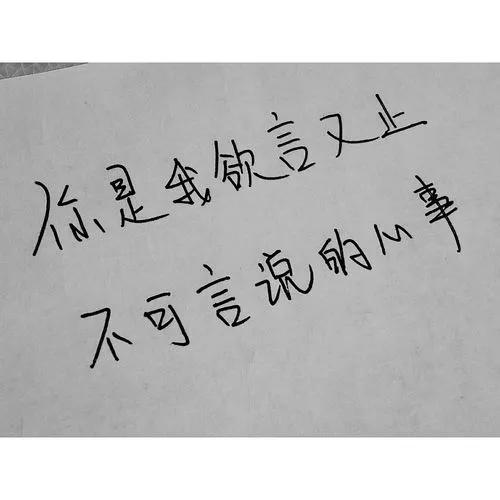 你是我欲言又止
不可言说的心事